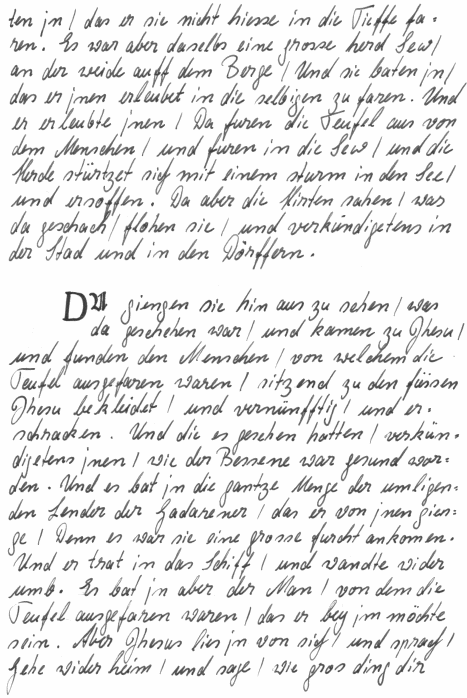 ten jn / das er sie nicht hiesse in die Tieffe fa=
ren. Es war aber daselbs eine grosse herd Sew /
an der weide auff dem Berge / Und sie baten jn /
das er jnen erleubet in die selbigen zu faren. Und
er erleubte jnen / Da furen die Teufel aus von
dem Menschen / und furen in die Sew / und die
Herde stürtzet sich mit einem sturm in den See /
und ersoffen. Da aber die Hirten sahen / was
da geschach / flohen sie / und verkündigetens in
der Stad und in den Dörffern.
DA giengen sie hin aus zu sehen / was
da geschehen war / und kamen zu Jhesu /
und funden den Menschen / von welchem die
Teufel ausgefaren waren / sitzend zu den füssen
Jhesu bekleidet / und vernünfftig / und er=
schracken. Und die es gesehen hatten / verkün=
digetens jnen / wie der Bessene war gesund wor=
den. Und es bat jn die gantze Menge der umligen=
den Lender der Gadarener / das er von jnen gien=
ge / Denn es war sie eine grosse furcht ankomen.
Und er trat in das Schiff / und wandte wider
umb. Es bat jn aber der Man / von dem die
Teufel ausgefaren waren / das er bey jm möchte
sein. Aber Jhesus lies jn von sich / und sprach /
Gehe wider heim / und sage / wie gros ding dir